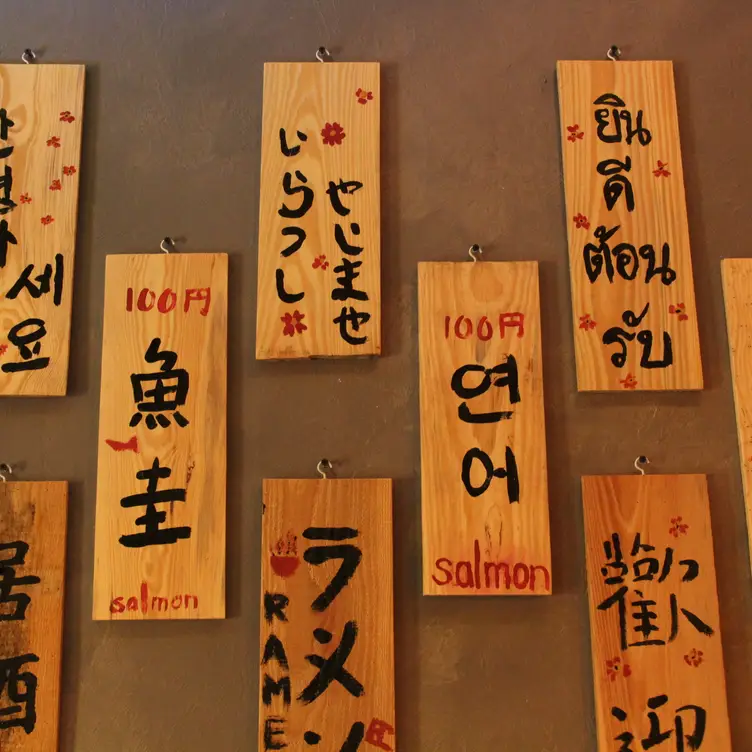 세요
いらつし
やじませ
ยิน
ดี
ต้อน
รับ
100円
魚圭
salmon
100円
연어
salmon
居酒
ラメン
RAME
円
歡迎